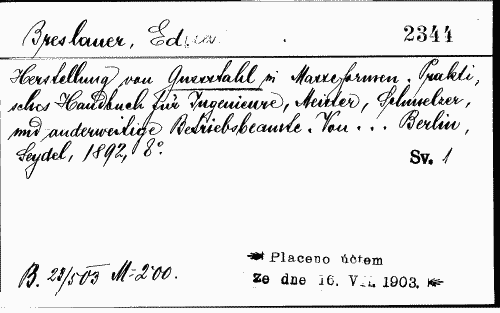 Breslauer, Ed
2344
Herstellung von Gussstahl in Masseformen. Prakti,
sches Handbuch für Ingenieure, Meister, Schmelzer,
und anderweitige Betriebsbeamte. Von ... Berlin,
Seydel, 1892, 8°.
Sv. 1
B. 22/5 03 M=2·00.
Placeno účtem
Ze dne 16. VII. 1903.